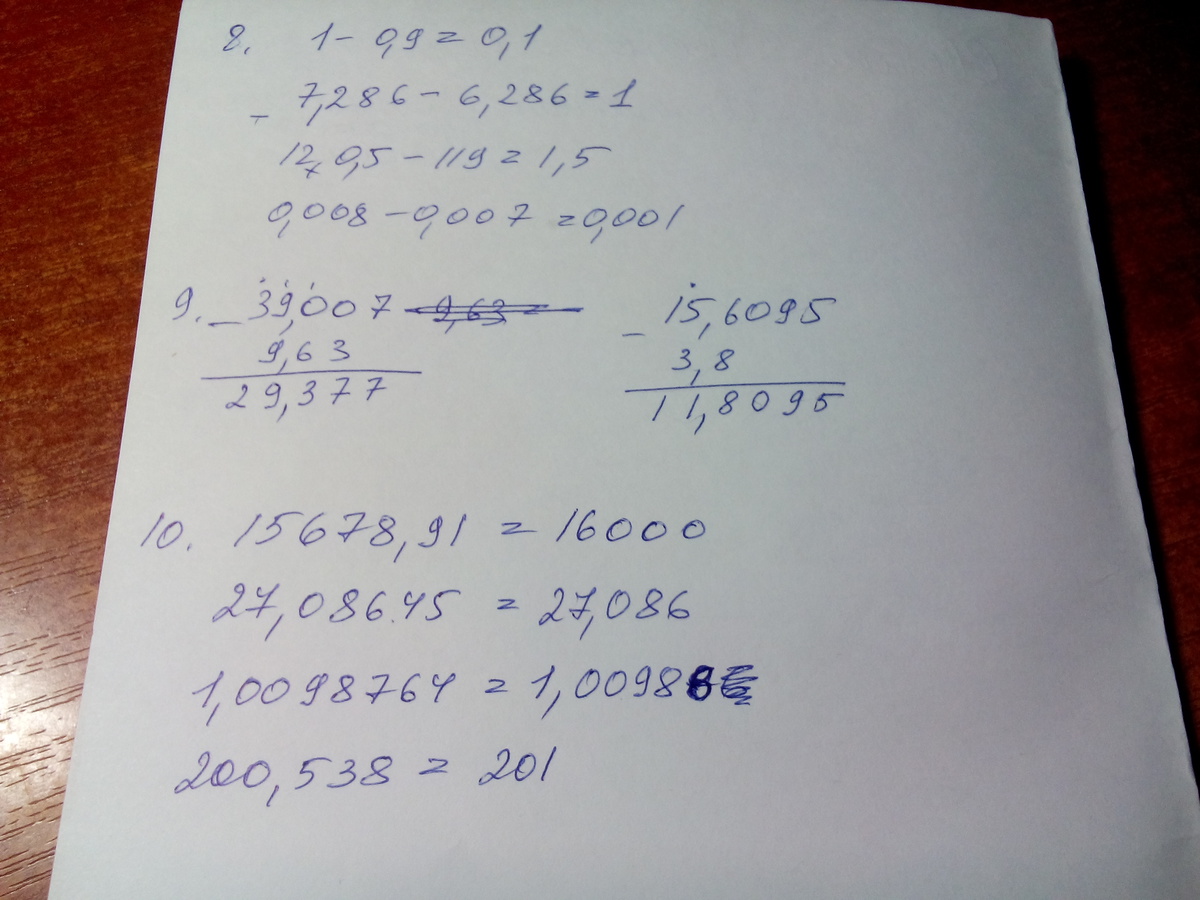 8. 1 - 0,9 = 0,1
- 7,286 - 6,286 = 1
120,5 - 119 = 1,5
0,008 - 0,007 = 0,001
9. - 39,007
9,63
29,377
- 15,6095
3,8
11,8095
10. 15678,91 = 16000
27,08645 = 27,086
1,0098764 = 1,0098
200,538 = 201